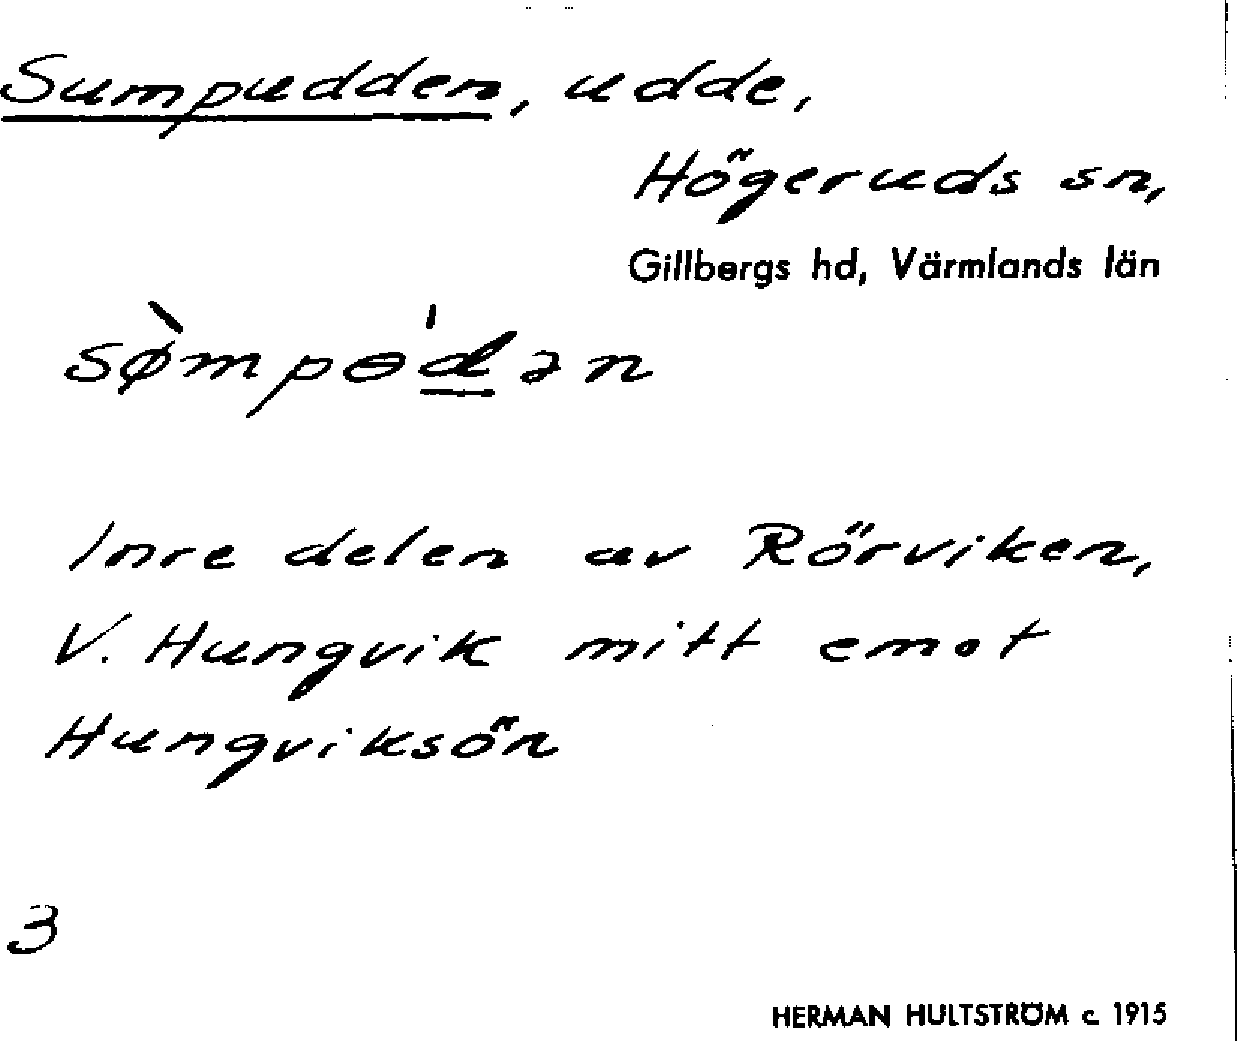 Sumpudden, udde,
Högeruds sn,
Gillbergs hd, Värmlands län
sø̀mpɵ'd̲ən
Inre delen av Rörviken,
V. Hungvik mitt emot
Hungviksön
3
HERMAN HULTSTRÖM c. 1915